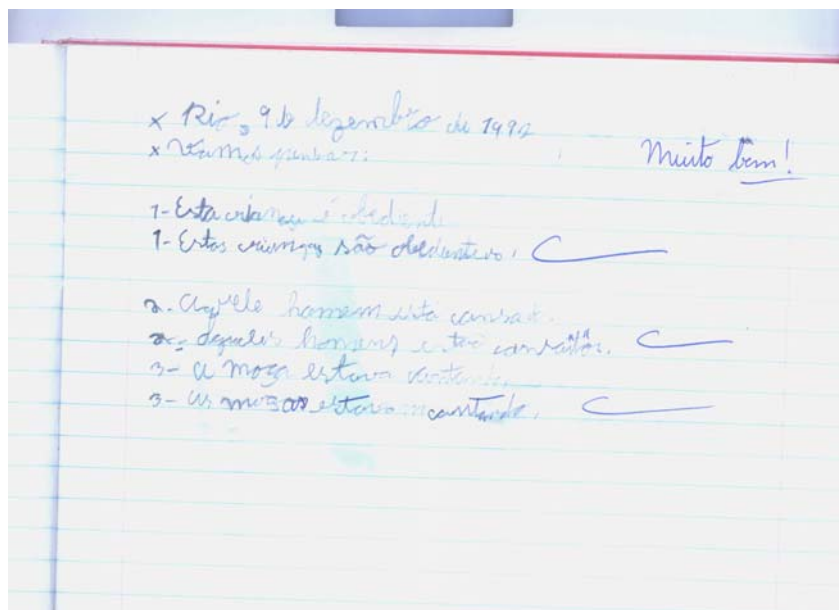 x Rio, 9 de dezembro de 1992
x Vamos pensar:
Muito bem!
1- Esta criança é obediente
1- Estas crianças são obedientes.
2. Aquele homem está cansado.
2- Aqueles homens estão cansados.
3- A moça estava cantando.
3- As moças estavam cantando.